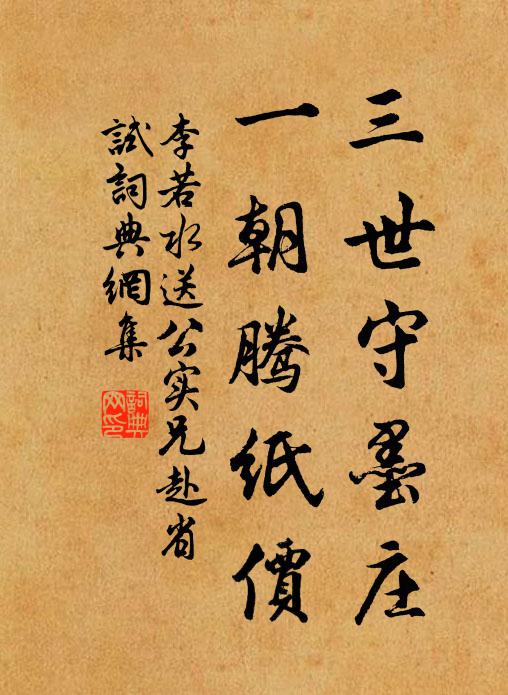 三世守墨庄
一朝腾紙價
李若水送公实兄赴省
試詞典網集
詞典网印